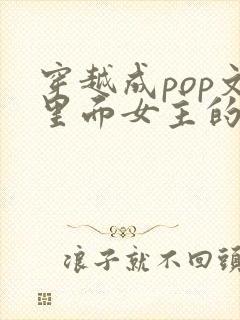 穿越成pop文
里而女主的
浪子就不回頭